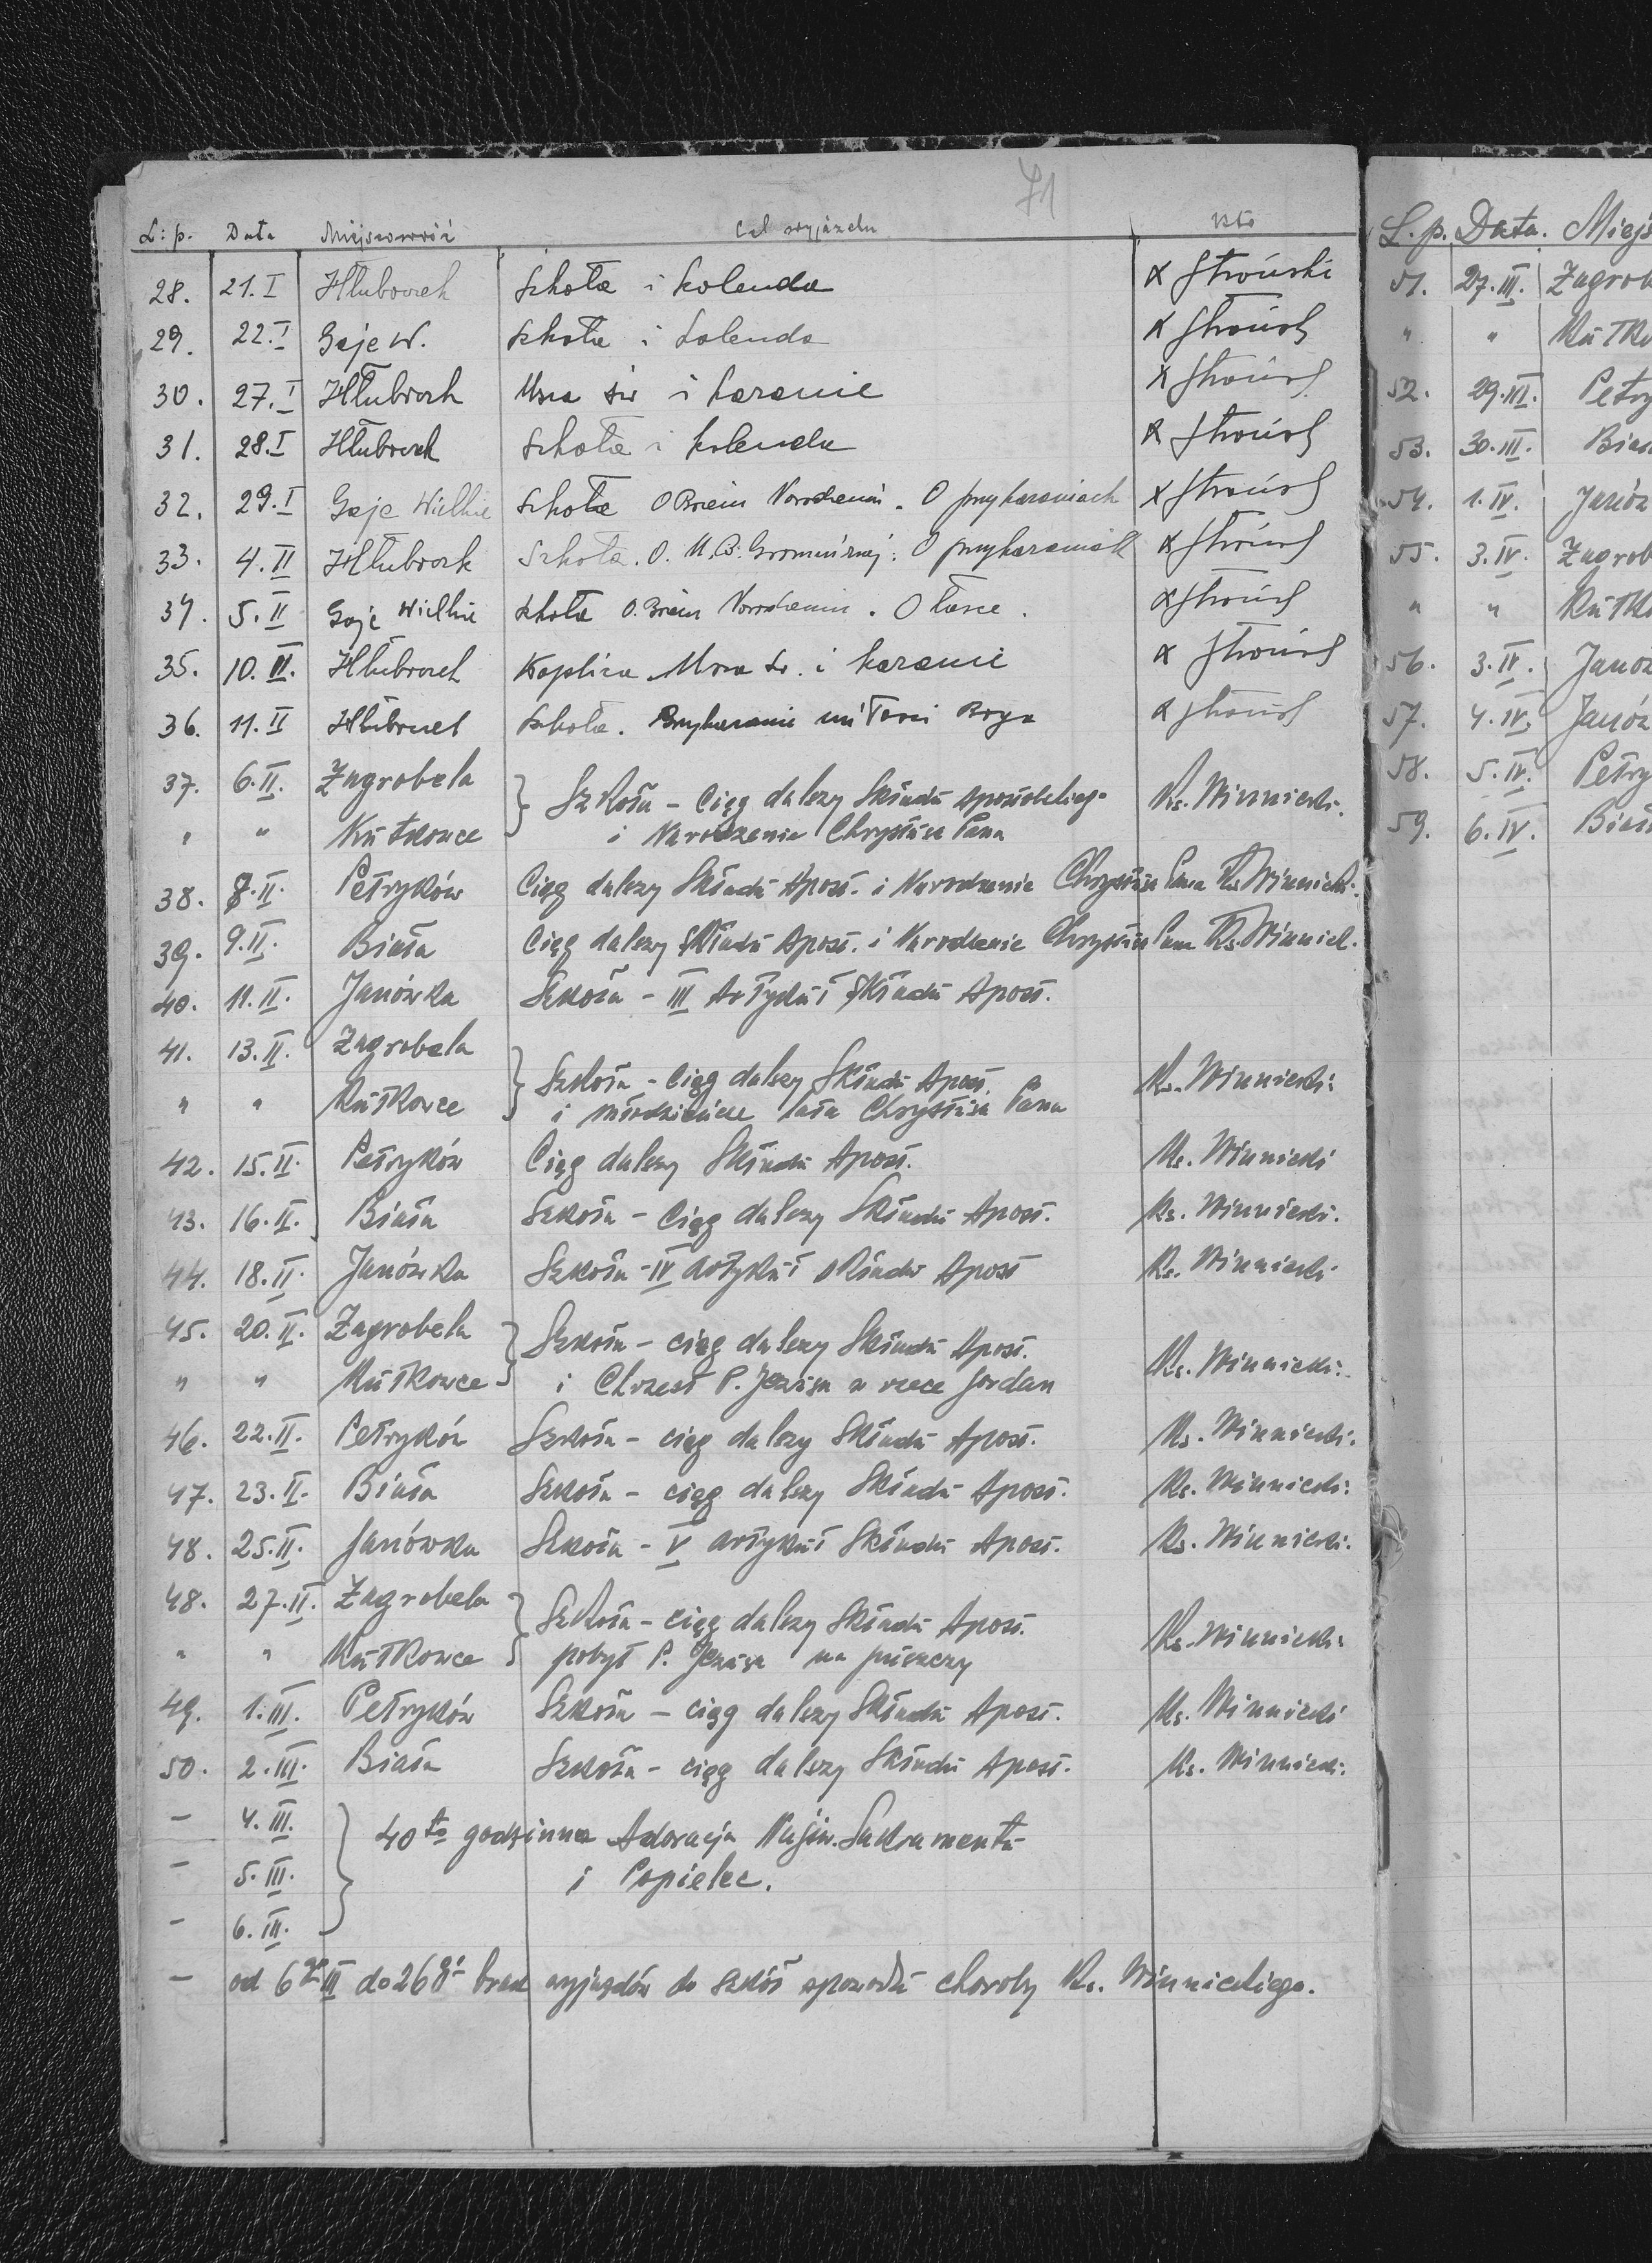 71
L: p. Data Miejscowość Cel wyjazdu Kto
28. 21. I Hłuboczek Szkoła i kolenda X Stroński
29. 22. I Gaje W. Szkoła i kolenda X Strońsk
30. 27. I Hłuboczek Msza św i kazanie X Strońsk
31. 28. I Hłuboczek Szkoła i kolenda X Strońsk
32. 29. I Gaje Wielkie Szkoła O Bożem Narodzeniu. O przykazaniach X Strońsk
33. 4. II Hłuboczek Szkoła. O. M. B. Gromnicznej. O przykazaniach X Strońsk
34. 5. II Gaje Wielkie Szkoła O. Bożem Narodzeniu. O łasce. X Strońsk
35. 10. II. Hłuboczek Kaplica Msza św. i kazanie X Strońsk
36. 11. II Hłuboczek Szkoła. Przykazanie miłości Boga X Strońsk
37. 6. II. Zagrobela } Szkoła - Ciąg dalszy Składu Apostolskiego Ks. Winnicki.
" " Kutkowce i Narodzenie Chrystusa Pana
38. 8. II. Petryków Ciąg dalszy Składu Apost. i Narodzenie Chrystusa Pana Ks. Winnicki.
39. 9. II. Biała Ciąg dalszy Składu Apost. i Narodzenie Chrystusa Pana Ks. Winnick.
40. 11. II. Janówka Szkoła - III Artykuł Składu Apost.
41. 13. II. Zagrobela } Szkoła - Ciąg dalszy Składu Apost. Ks. Winnicki.
" " Kutkowce i młodzieńcze lata Chrystusa Pana
42. 15. II. Petryków Ciąg dalszy Składu Apost. Ks. Winnicki
43. 16. II. Biała Szkoła - Ciąg dalszy Składu Apost. Ks. Winnicki.
44. 18. II. Janówka Szkoła - IV artykuł składu Apost Ks. Winnicki
45. 20. II. Zagrobela } Szkoła - ciąg dalszy Składu Apost. Ks. Winnicki.
" " Kutkowce i Chrzest P. Jezusa w rzece Jordan
46. 22. II. Petryków Szkoła - ciąg dalszy Składu Apost. Ks. Winnicki.
47. 23. II. Biała Szkoła - ciąg dalszy Składu Apost. Ks. Winnicki.
48. 25. II. Janówka Szkoła - V artykuł Składu Apost. Ks. Winnicki.
48. 27. II. Zagrobela } Szkoła - ciąg dalszy Składu Apost. Ks. Winnicki.
" " Kutkowce pobyt P. Jezusa na puszczy
49. 1. III. Petryków Szkoła - ciąg dalszy Składu Apost. Ks. Winnicki
50. 2. III. Biała Szkoła - ciąg dalszy Składu Apost. Ks. Winnicki.
- 4. III. } 40to godzinna Adoracja Najśw. Sakramentu
- 5. III. i Popielec.
- 6. III.
- od 6go III do 26go brak wyjazdów do szkół spowodu choroby Ks. Winnickiego.
L. p. Data. Miejs
51. 27. III. Zagrob
" " Kutko
52. 29. III. Petry
53. 30. III. Biał
54. 1. IV. Janów
55. 3. IV. Zagrob
" " Kutk
56. 3. IV. Janów
57. 4. IV. Janów
58. 5. IV. Petry
59. 6. IV. Biał